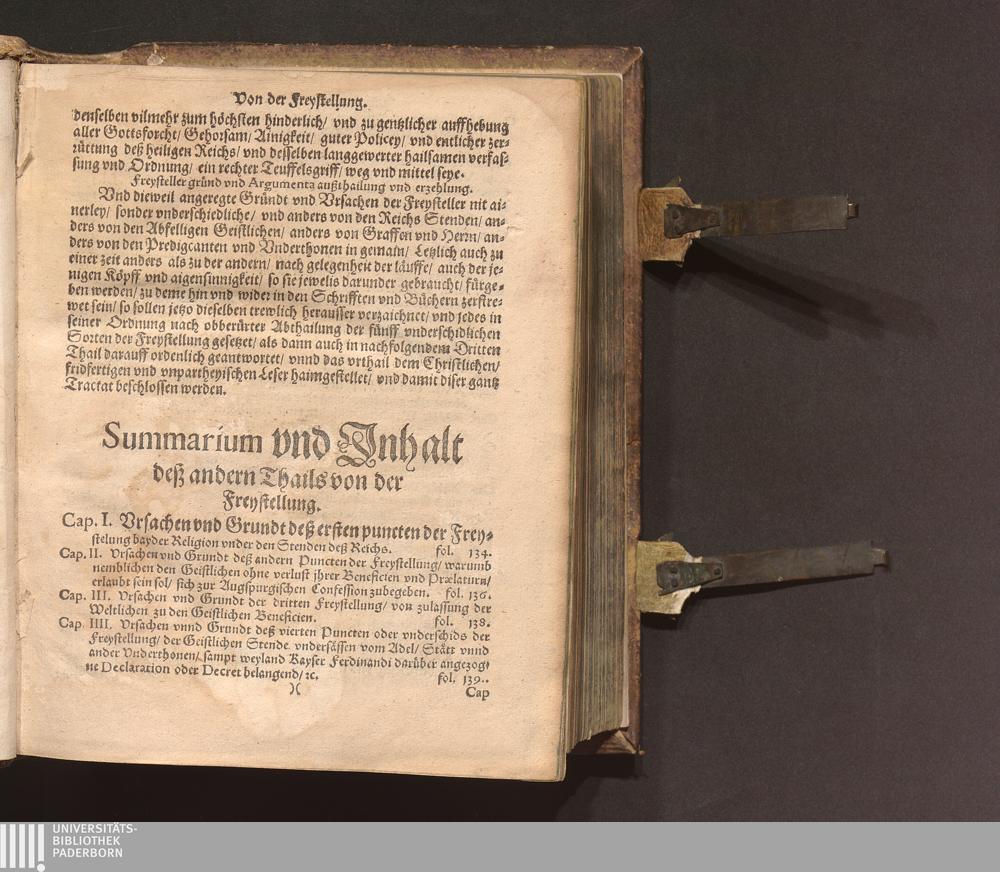 Von der Freystellung.
denselben vilmehr zum höchsten hinderlich/ vnd zu gentzlicher auffhebung
aller Gottsforcht/ Gehorsam/ Ainigkeit/ guter Policey/ vnd entlicher zer-
rüttung deß heiligen Reichs/ vnd desselben langgewerter hailsamen verfas-
sung vnd Ordnung/ ein rechter Teuffelsgriff/ weg vnd mittel seye.
Freysteller gründ vnd Argumenta außthailung vnd erzehlung.
Vnd dieweil angeregte Gründt vnd Vrsachen der Freysteller nit ai-
nerley/ sonder vnderschiedliche/ vnd anders von den Reichs Stenden/ an-
ders von den Abfelligen Geistlichen/ anders von Graffen vnd Herrn/ an-
ders von den Predigcanten vnd Vnderthonen in gemain/ Letzlich auch zu
einer zeit anders als zu der andern/ nach gelegenheit der läuffe/ auch der je-
nigen Köpff vnd aigensinnigkeit/ so sie jewelis darunder gebraucht/ fürge-
ben werden/ zu deme hin vnd wider in den Schrifften vnd Büchern zerstre-
wet sein/ so sollen jetzo dieselben trewlich herausser verzaichnet/ vnd jedes in
seiner Ordnung nach obberürter Abthailung der fünff vnderschidlichen
Sorten der Freystellung gesetzet/ als dann auch in nachfolgendem Dritten
Thail darauff ordenlich geantwortet/ vnnd das vrthail dem Christlichen/
fridfertigen vnd vnpartheyischen Leser haimgestellet/ vnd damit diser gantz
Tractat beschlossen werden.
Summarium vnd Inhalt
deß andern Thails von der
Freystellung.
Cap. I. Vrsachen vnd Grundt deß ersten puncten der Frey-
stelung bayder Religion vnder den Stenden deß Reichs. fol. 134.
Cap. II. Vrsachen vnd Grundt deß andern Puncten der Freystellung/ warumb
nemblichen den Geistlichen ohne verlust jhrer Beneficien vnd Prælaturn/
erlaubt sein sol/ sich zur Augspurgischen Confession zubegeben. fol. 136.
Cap. III. Vrsachen vnd Grundt der dritten Freystellung/ von zulassung der
Weltlichen zu den Geistlichen Beneficien. fol. 138.
Cap. IIII. Vrsachen vnnd Grundt deß vierten Puncten oder vnderschids der
Freystellung/ der Geistlichen Stende vndersässen vom Adel/ Stätt vnnd
ander Vnderthonen/ sampt weyland Kayser Ferdinandi darüber angezog-
ne Declaration oder Decret belangend/ ꝛc. fol. 139..
)( Cap
UNIVERSITÄTS-
BIBLIOTHEK
PADERBORN